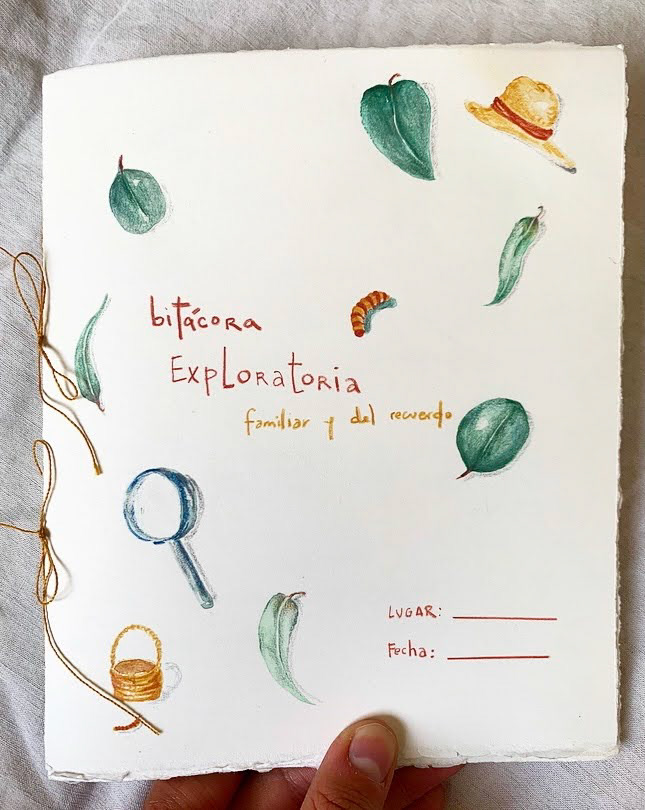 bitácora
Exploratoria
familiar y del recuerdo
LUGAR:
Fecha: